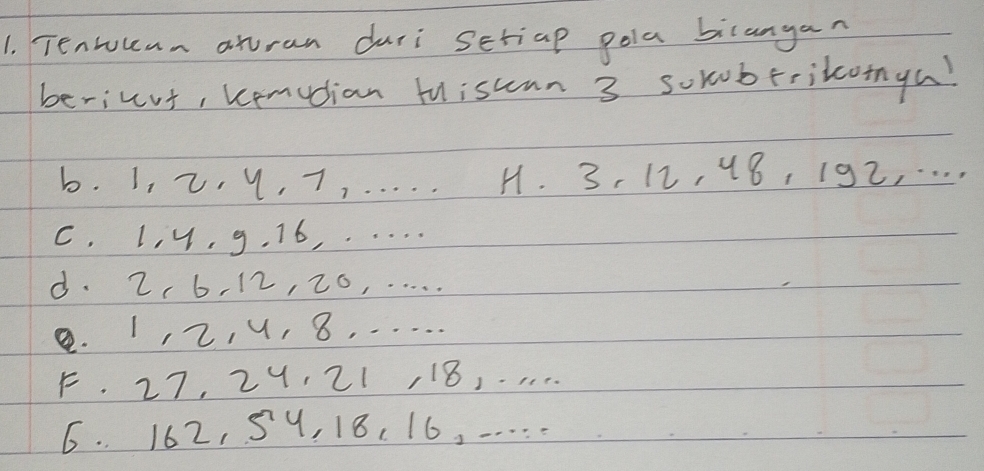 1. Tentukan aturan dari setiap pola bilangan
berikut, kemudian tuliskan 3 sukubrikutnya!
b. 1, 2, 4, 7, ..... H. 3, 12, 48, 192, ....
C. 1, 4, 9, 16, .....
d. 2, 6, 12, 20, .....
e. 1, 2, 4, 8, ......
F. 27, 24, 21, 18, .....
G.. 162, 54, 18, 16, ......